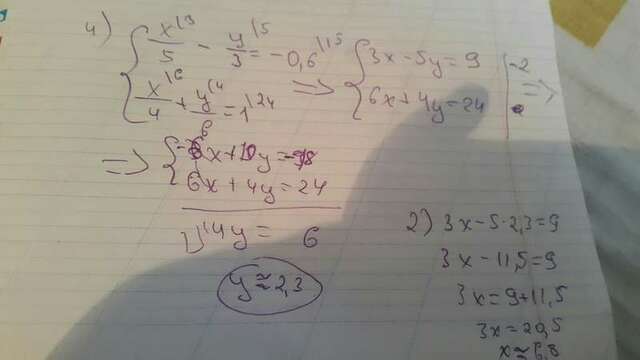 4) { x/5 |3 - y/3 |5 = -0,6 |15 => { 3x - 5y = 9 | -2
{ x/4 |6 + y/6 |4 = 1 |24 { 6x + 4y = 24 | =>
=> { -6x + 10y = -18
6x + 4y = 24
14y = 6
y ≈ 2,3
2) 3x - 5·2,3 = 9
3x - 11,5 = 9
3x = 9 + 11,5
3x = 20,5
x ≈